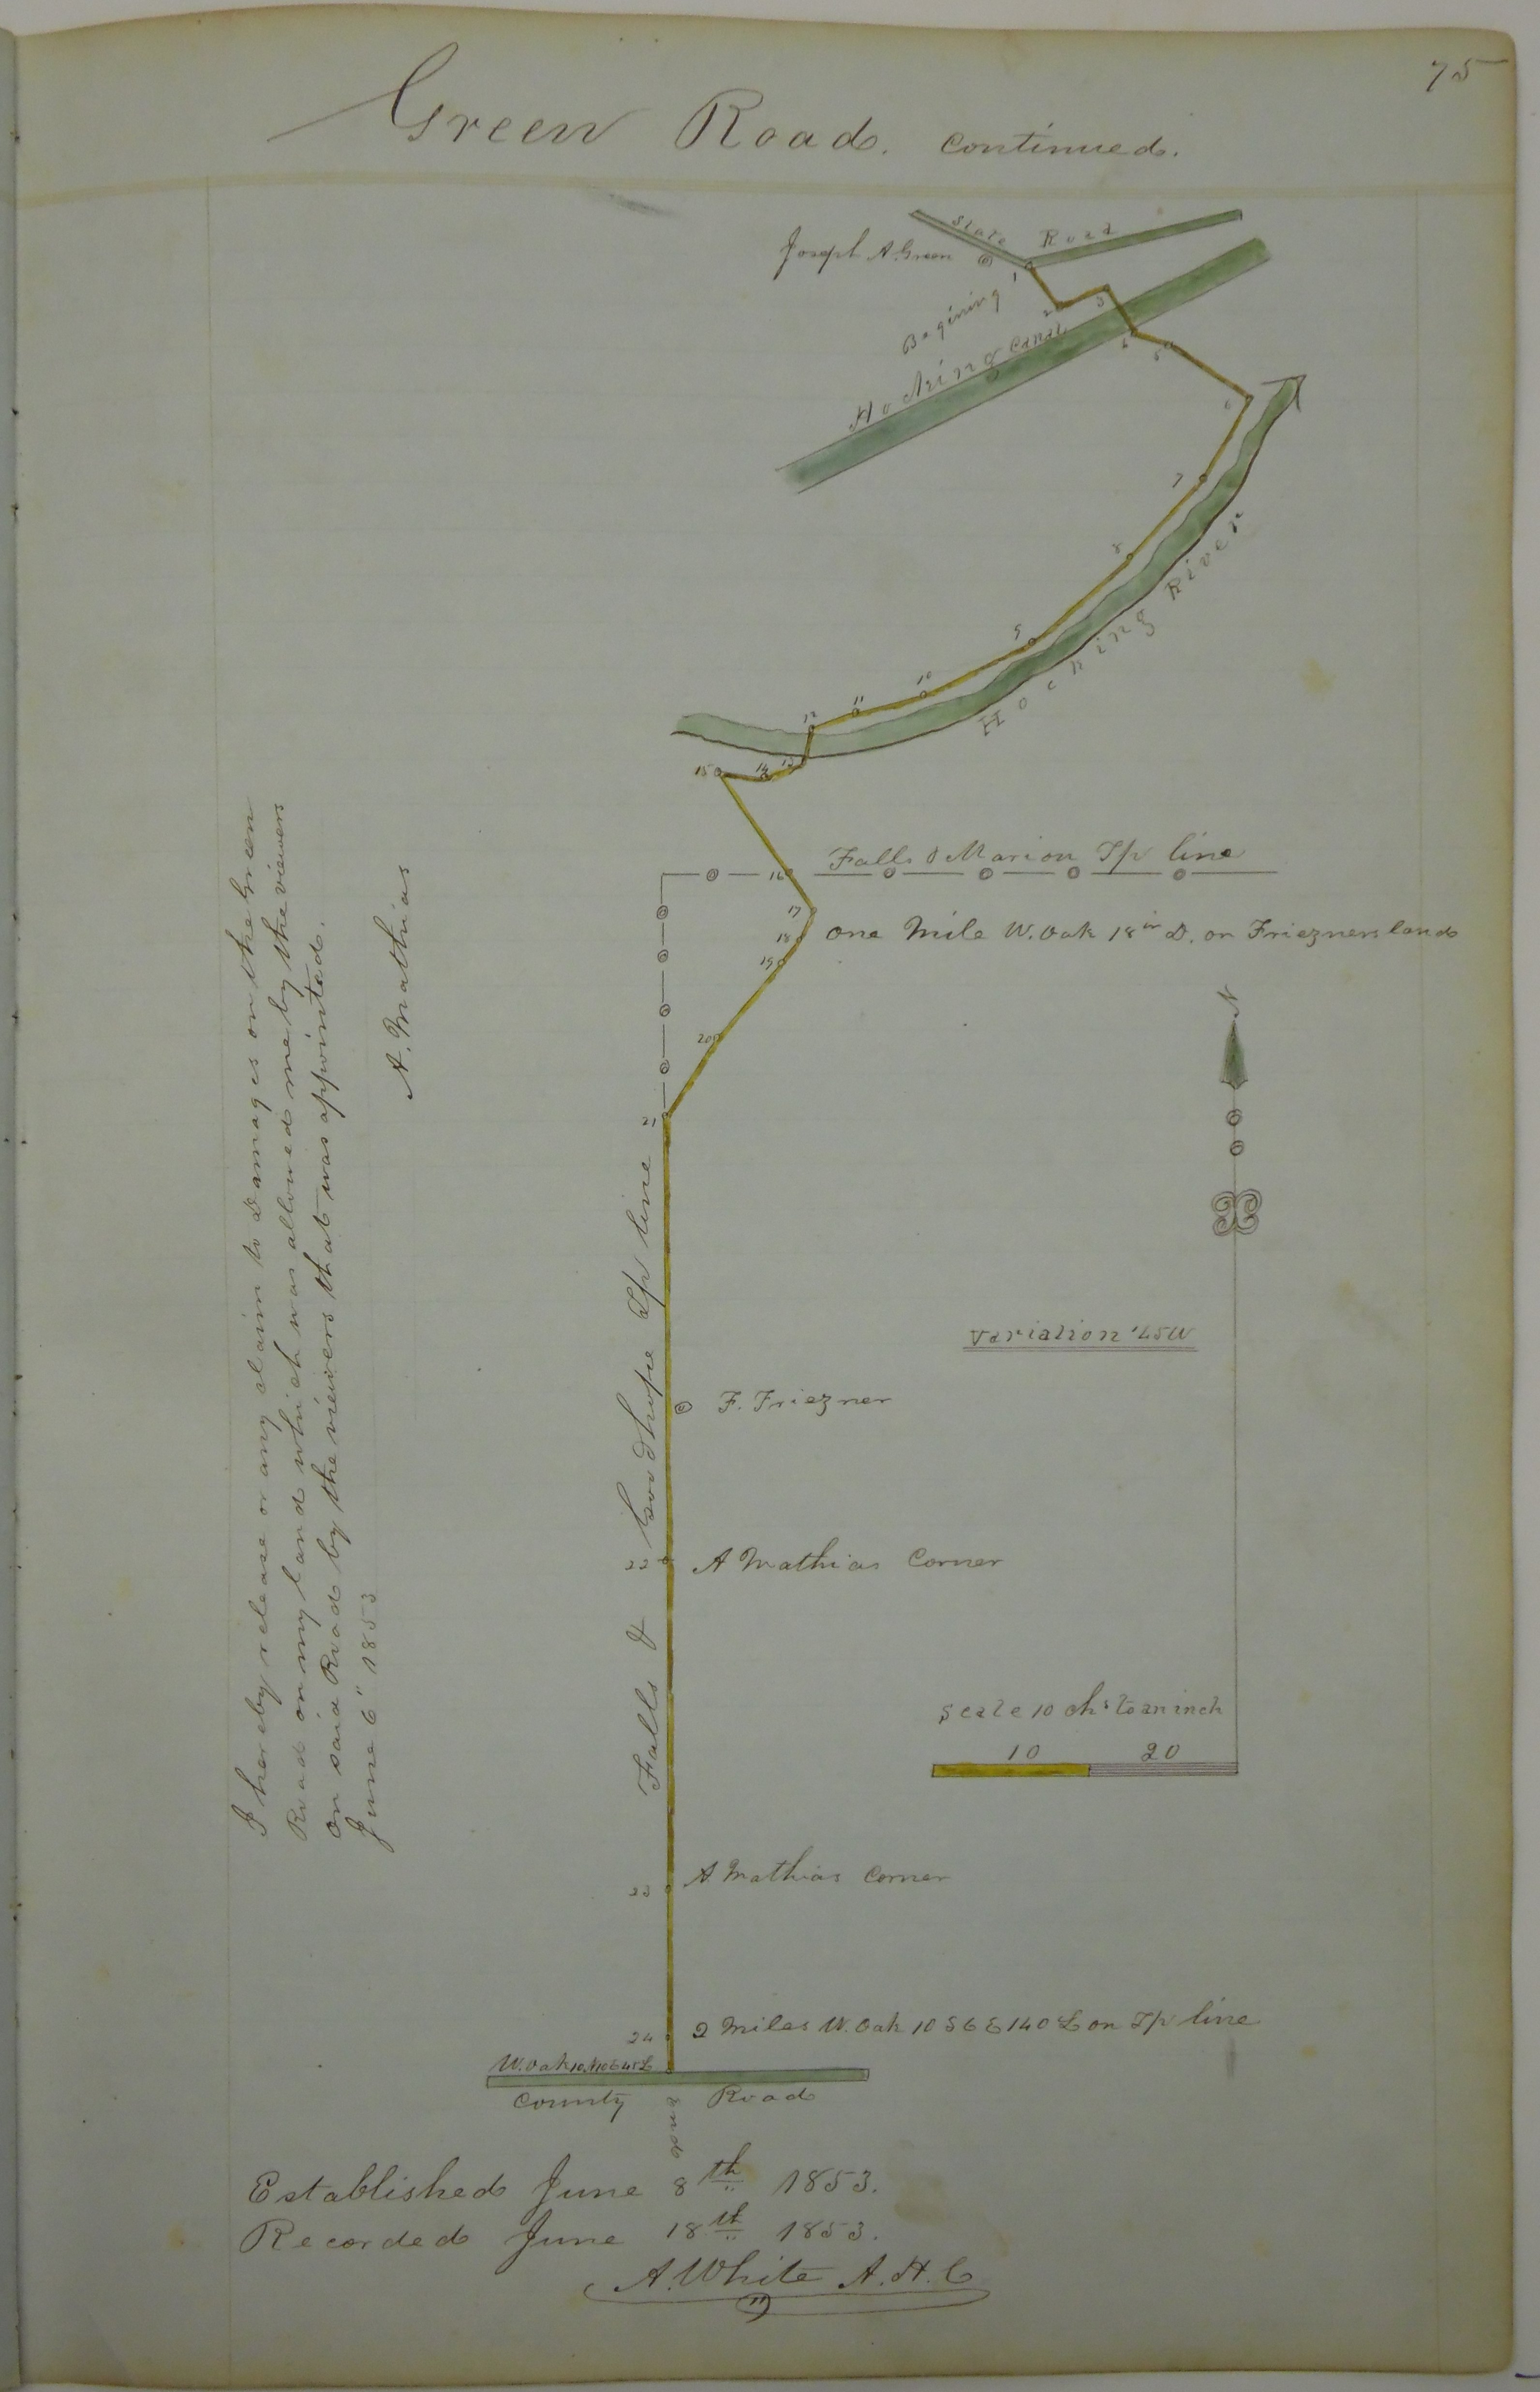 75
Green Road. continued.
State Road
Joseph A. Green
Begining
1
2
3
4
5
6
7
8
9
10
11
12
13
14
15
Hocking Canal
Hocking River
Falls & Marion Tp line
16
17
18
19
20
21
one Mile W. Oak 18 in D. on Friezners land
N
I hereby release or any claim to Damages on the Green
Road on my land which was allowed me by the viewers
on said Road by the viewers that was appointed.
June 6" 1853
A. Mathias
Falls & Goodhope Tp line
Variation '45W
F. Friezner
22
A Mathias Corner
Scale 10 chs to an inch
10 20
23
A Mathias Corner
24
2 Miles W. Oak 10 S 6 E 140 L on Tp line
W. oak 10 N 10 E 45 L
County Road
End
Established June 8th 1853.
Recorded June 18th 1853.
A. White A.H.C